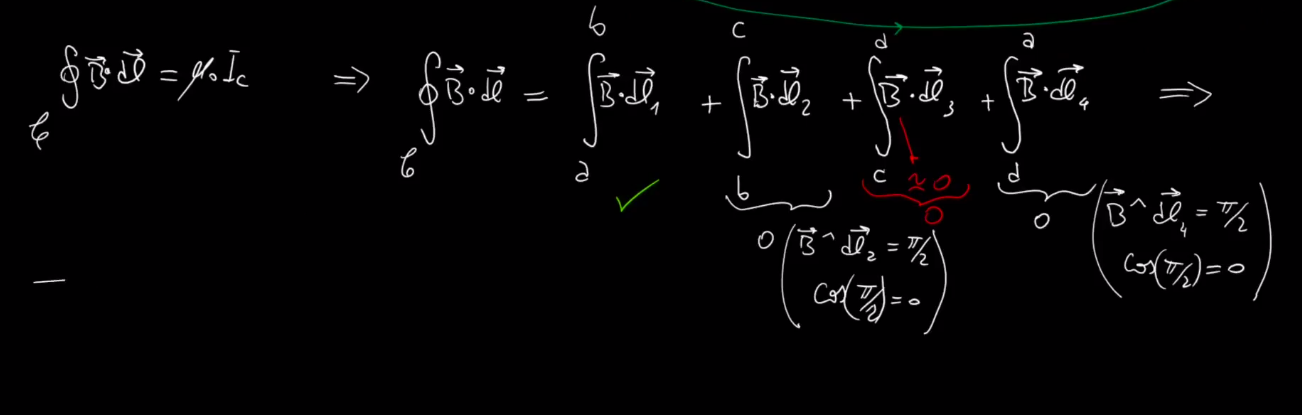 ∮_C B⃗·dl⃗ = μ₀ I_c ⇒ ∮_C B⃗·dl⃗ = ∫_a^b B⃗·dl⃗₁ + ∫_b^c B⃗·dl⃗₂ + ∫_c^d B⃗·dl⃗₃ + ∫_d^a B⃗·dl⃗₄ ⇒
≃ 0
0
0 (B⃗ ^ dl⃗₂ = π/2
cos(π/2) = 0)
0 (B⃗ ^ dl⃗₄ = π/2
cos(π/2) = 0)